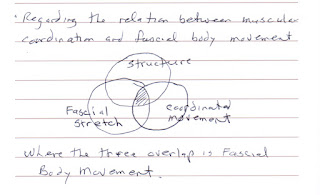 · Regarding the relation between muscular
coordination and fascial body movement
Structure
Fascial
Stretch
coordinated
movement
Where the three overlap is Fascial
Body Movement.